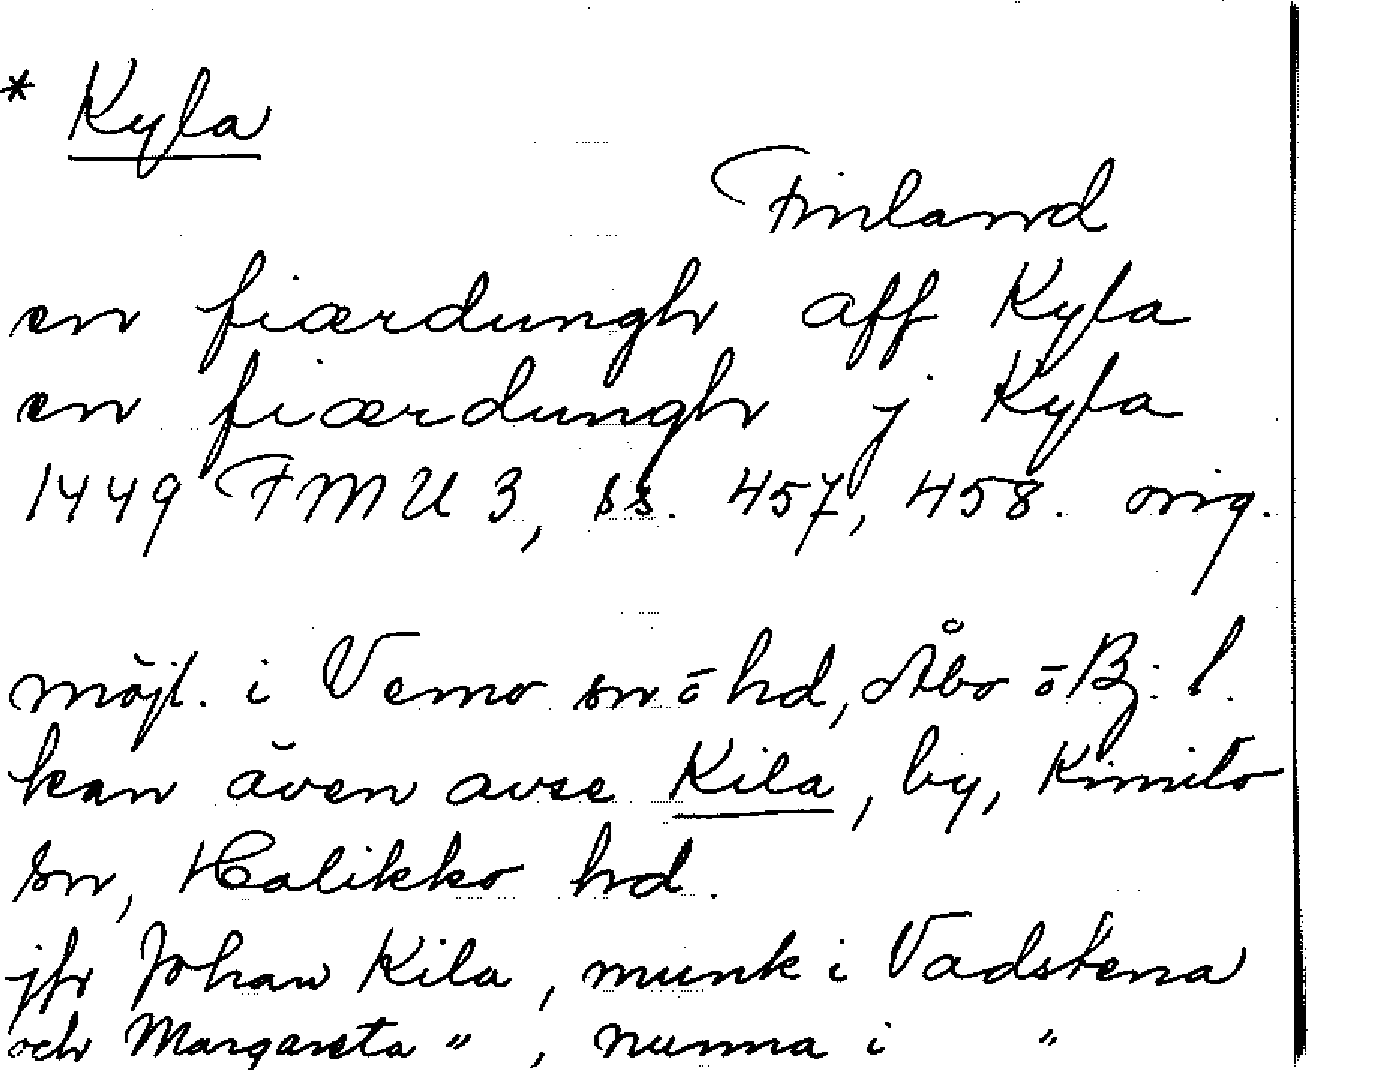 * Kyla
Finland
en fiærdungh aff Kyla
en fiærdungh j Kyla
1449 FMU 3, ss. 457, 458. orig.
möjl. i Vemo sn o hd, Åbo o Bj: l.
kan även avse Kila, by, Kimito
sn, Halikko hd.
jfr Johan Kila, munk i Vadstena
och Margareta ", nunna i "